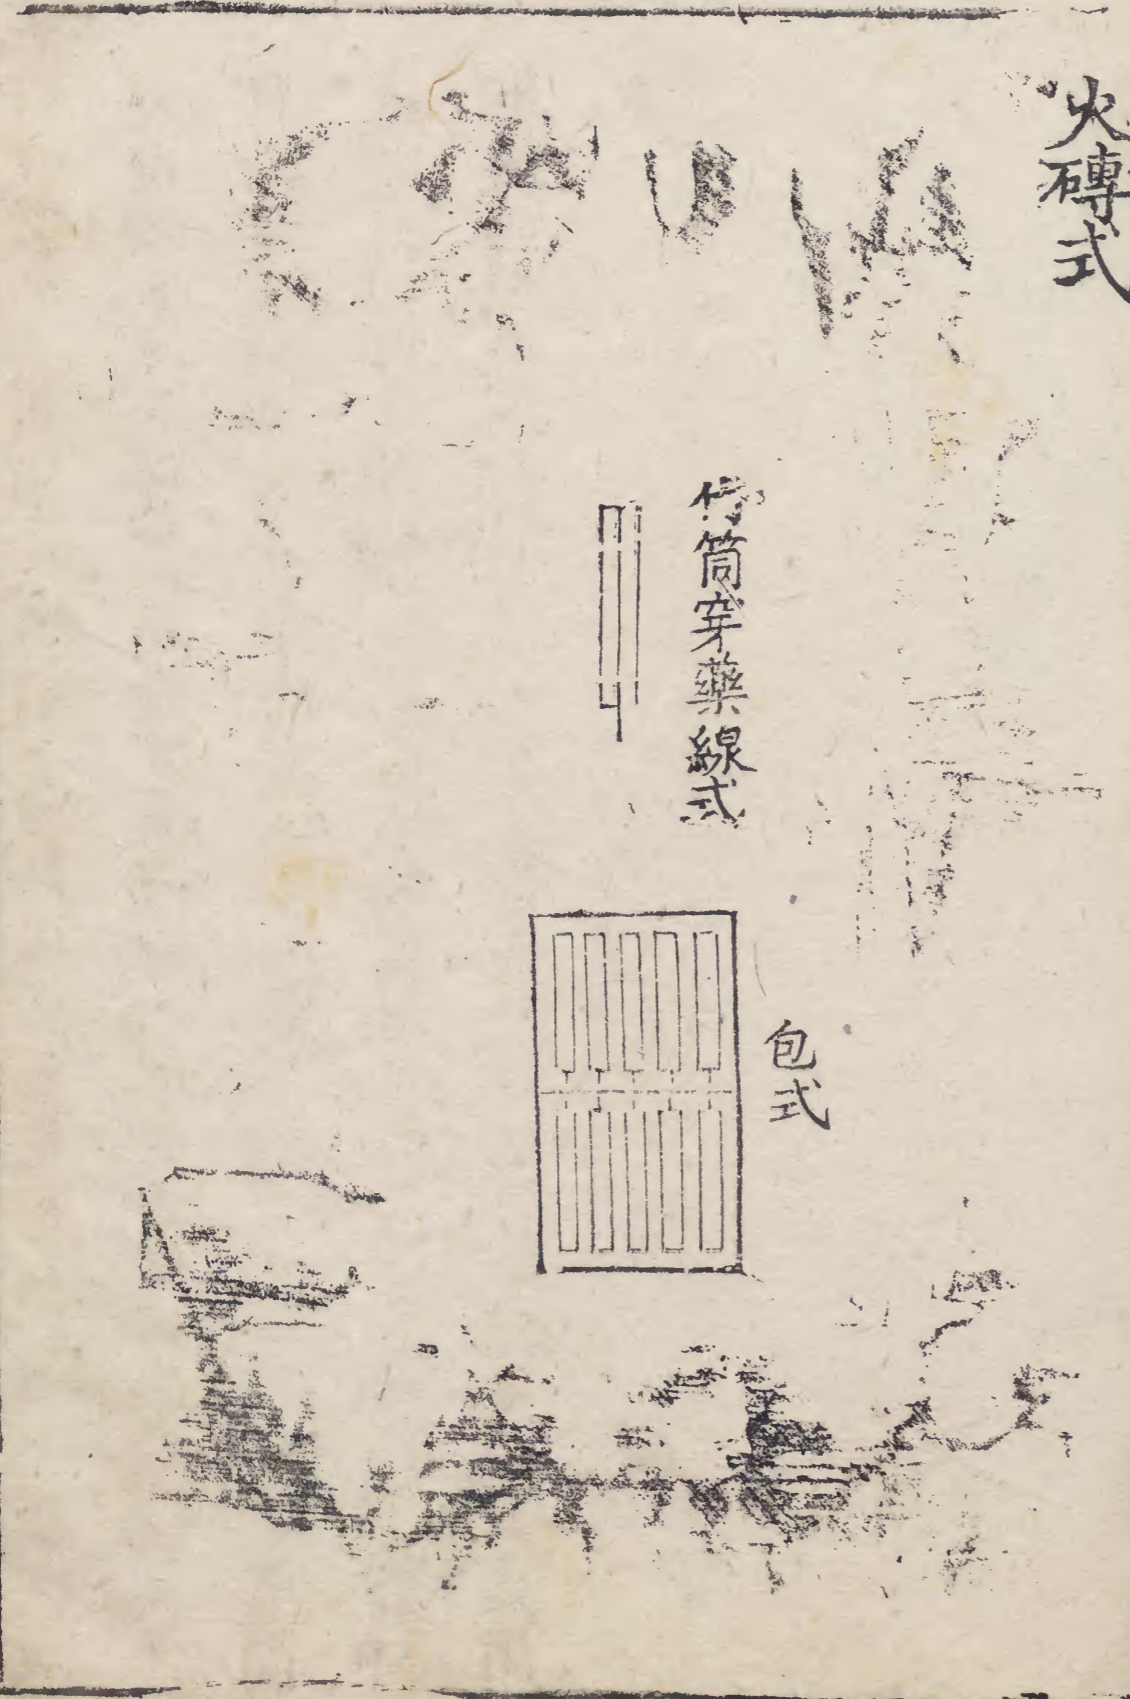 火磚式
竹筒穿藥線式
包式